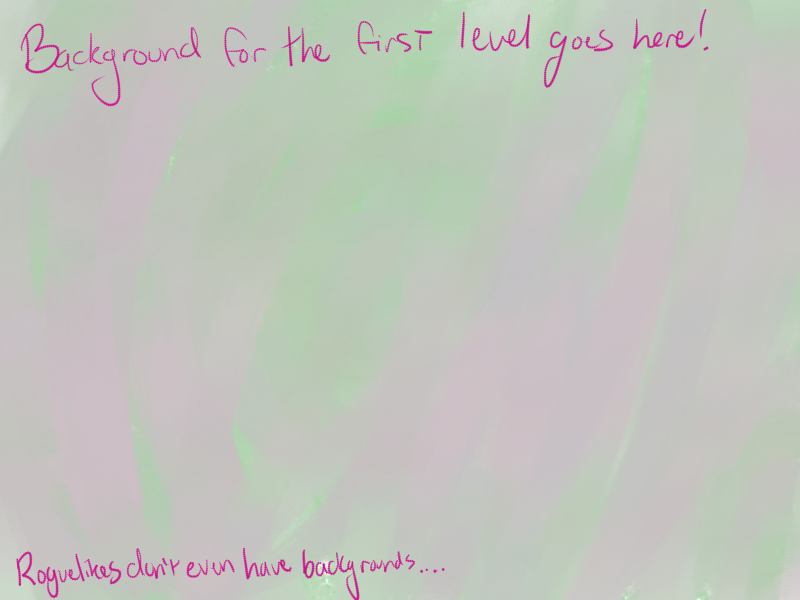 Background for the first level goes here!
Roguelikes don't even have backgrounds....